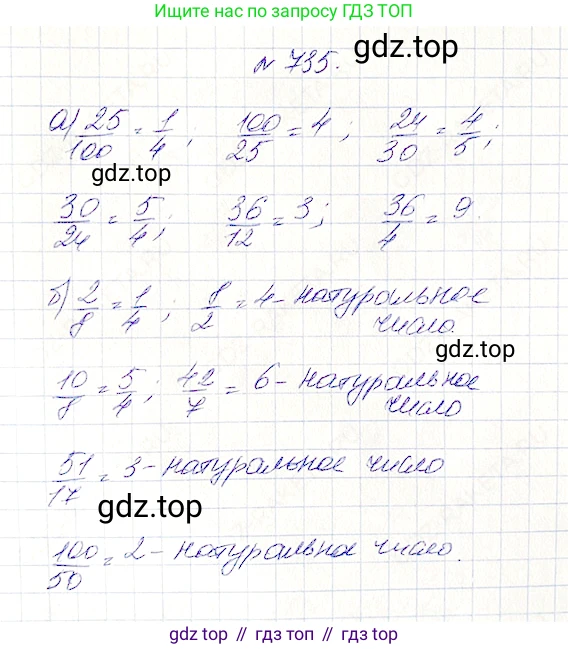 Ищите нас по запросу ГДЗ ТОП
№ 735.
gdz.top
а) 25/100 = 1/4; 100/25 = 4; 24/30 = 4/5;
gdz.top
30/24 = 5/4; 36/12 = 3; 36/4 = 9.
б) 2/8 = 1/4; 8/2 = 4 - натуральное
число.
gdz.top
10/8 = 5/4; 42/7 = 6 - натуральное
число
51/17 = 3 - натуральное число
gdz.top
100/50 = 2 - натуральное число.
gdz top // гдз топ // gdz.top